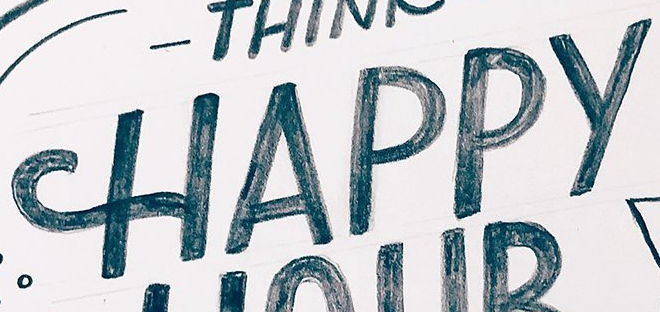 THINK
HAPPY
HOUR